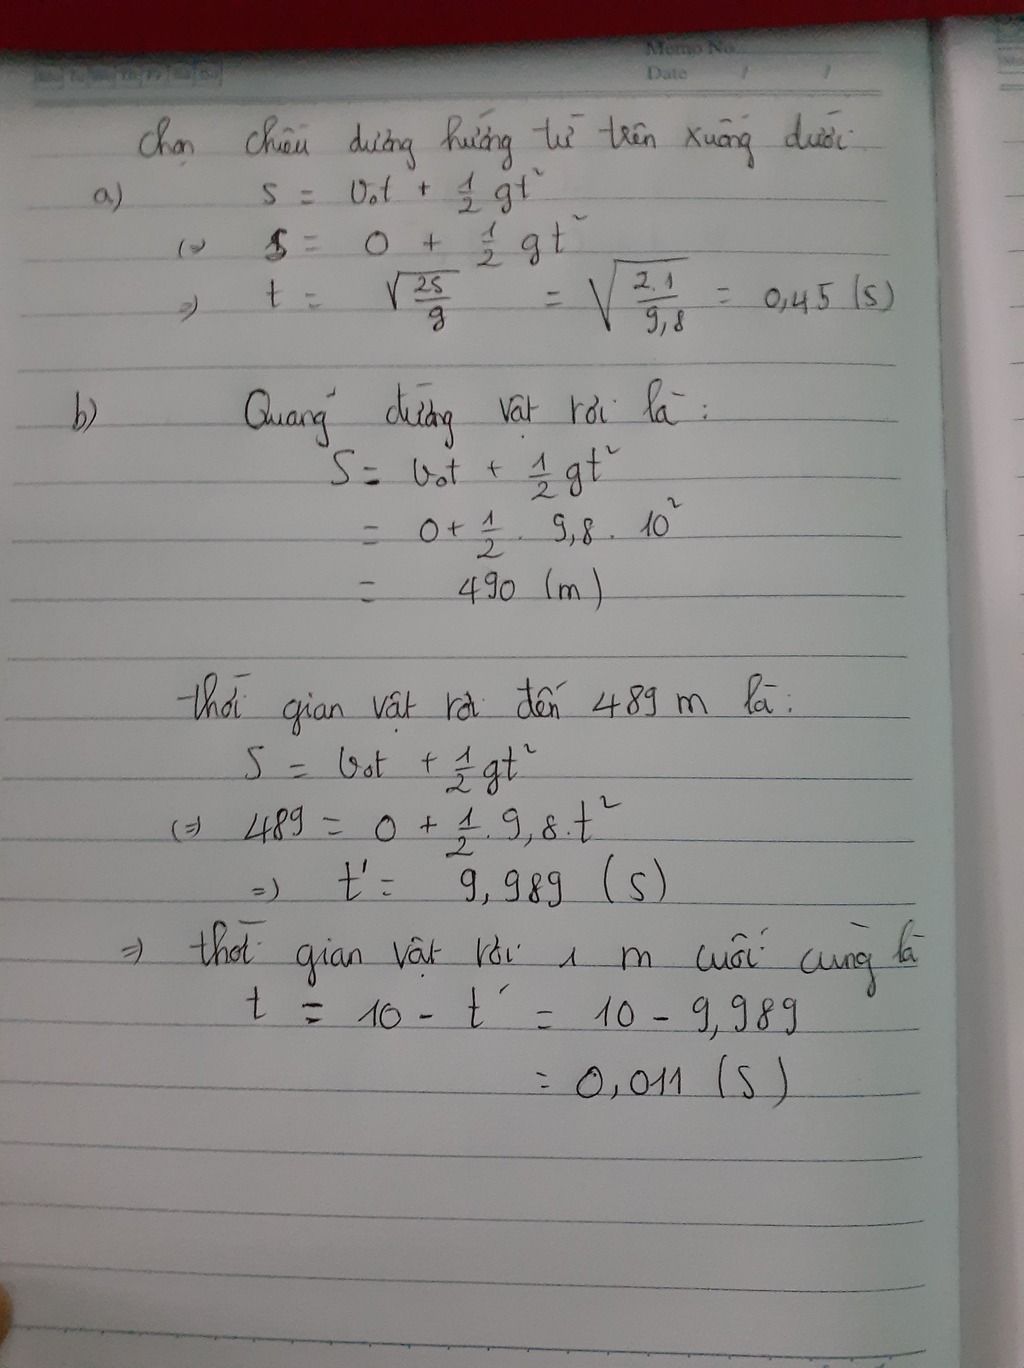 Memo No.
Date / /
Chọn chiều dương hướng từ trên xuống dưới
a) S = v₀t + 1/2 gt²
(=) S = 0 + 1/2 gt²
=) t = √(2S/g) = √(2.1/9,8) = 0,45 (s)
b) Quãng đường vật rơi là :
S = v₀t + 1/2 gt²
= 0 + 1/2 . 9,8 . 10²
= 490 (m)
thời gian vật rơi đến 489 m là :
S = v₀t + 1/2 gt²
(=) 489 = 0 + 1/2 . 9,8 . t²
=) t' = 9,989 (s)
=) thời gian vật rơi 1 m cuối cùng là
t = 10 - t' = 10 - 9,989
= 0,011 (s)